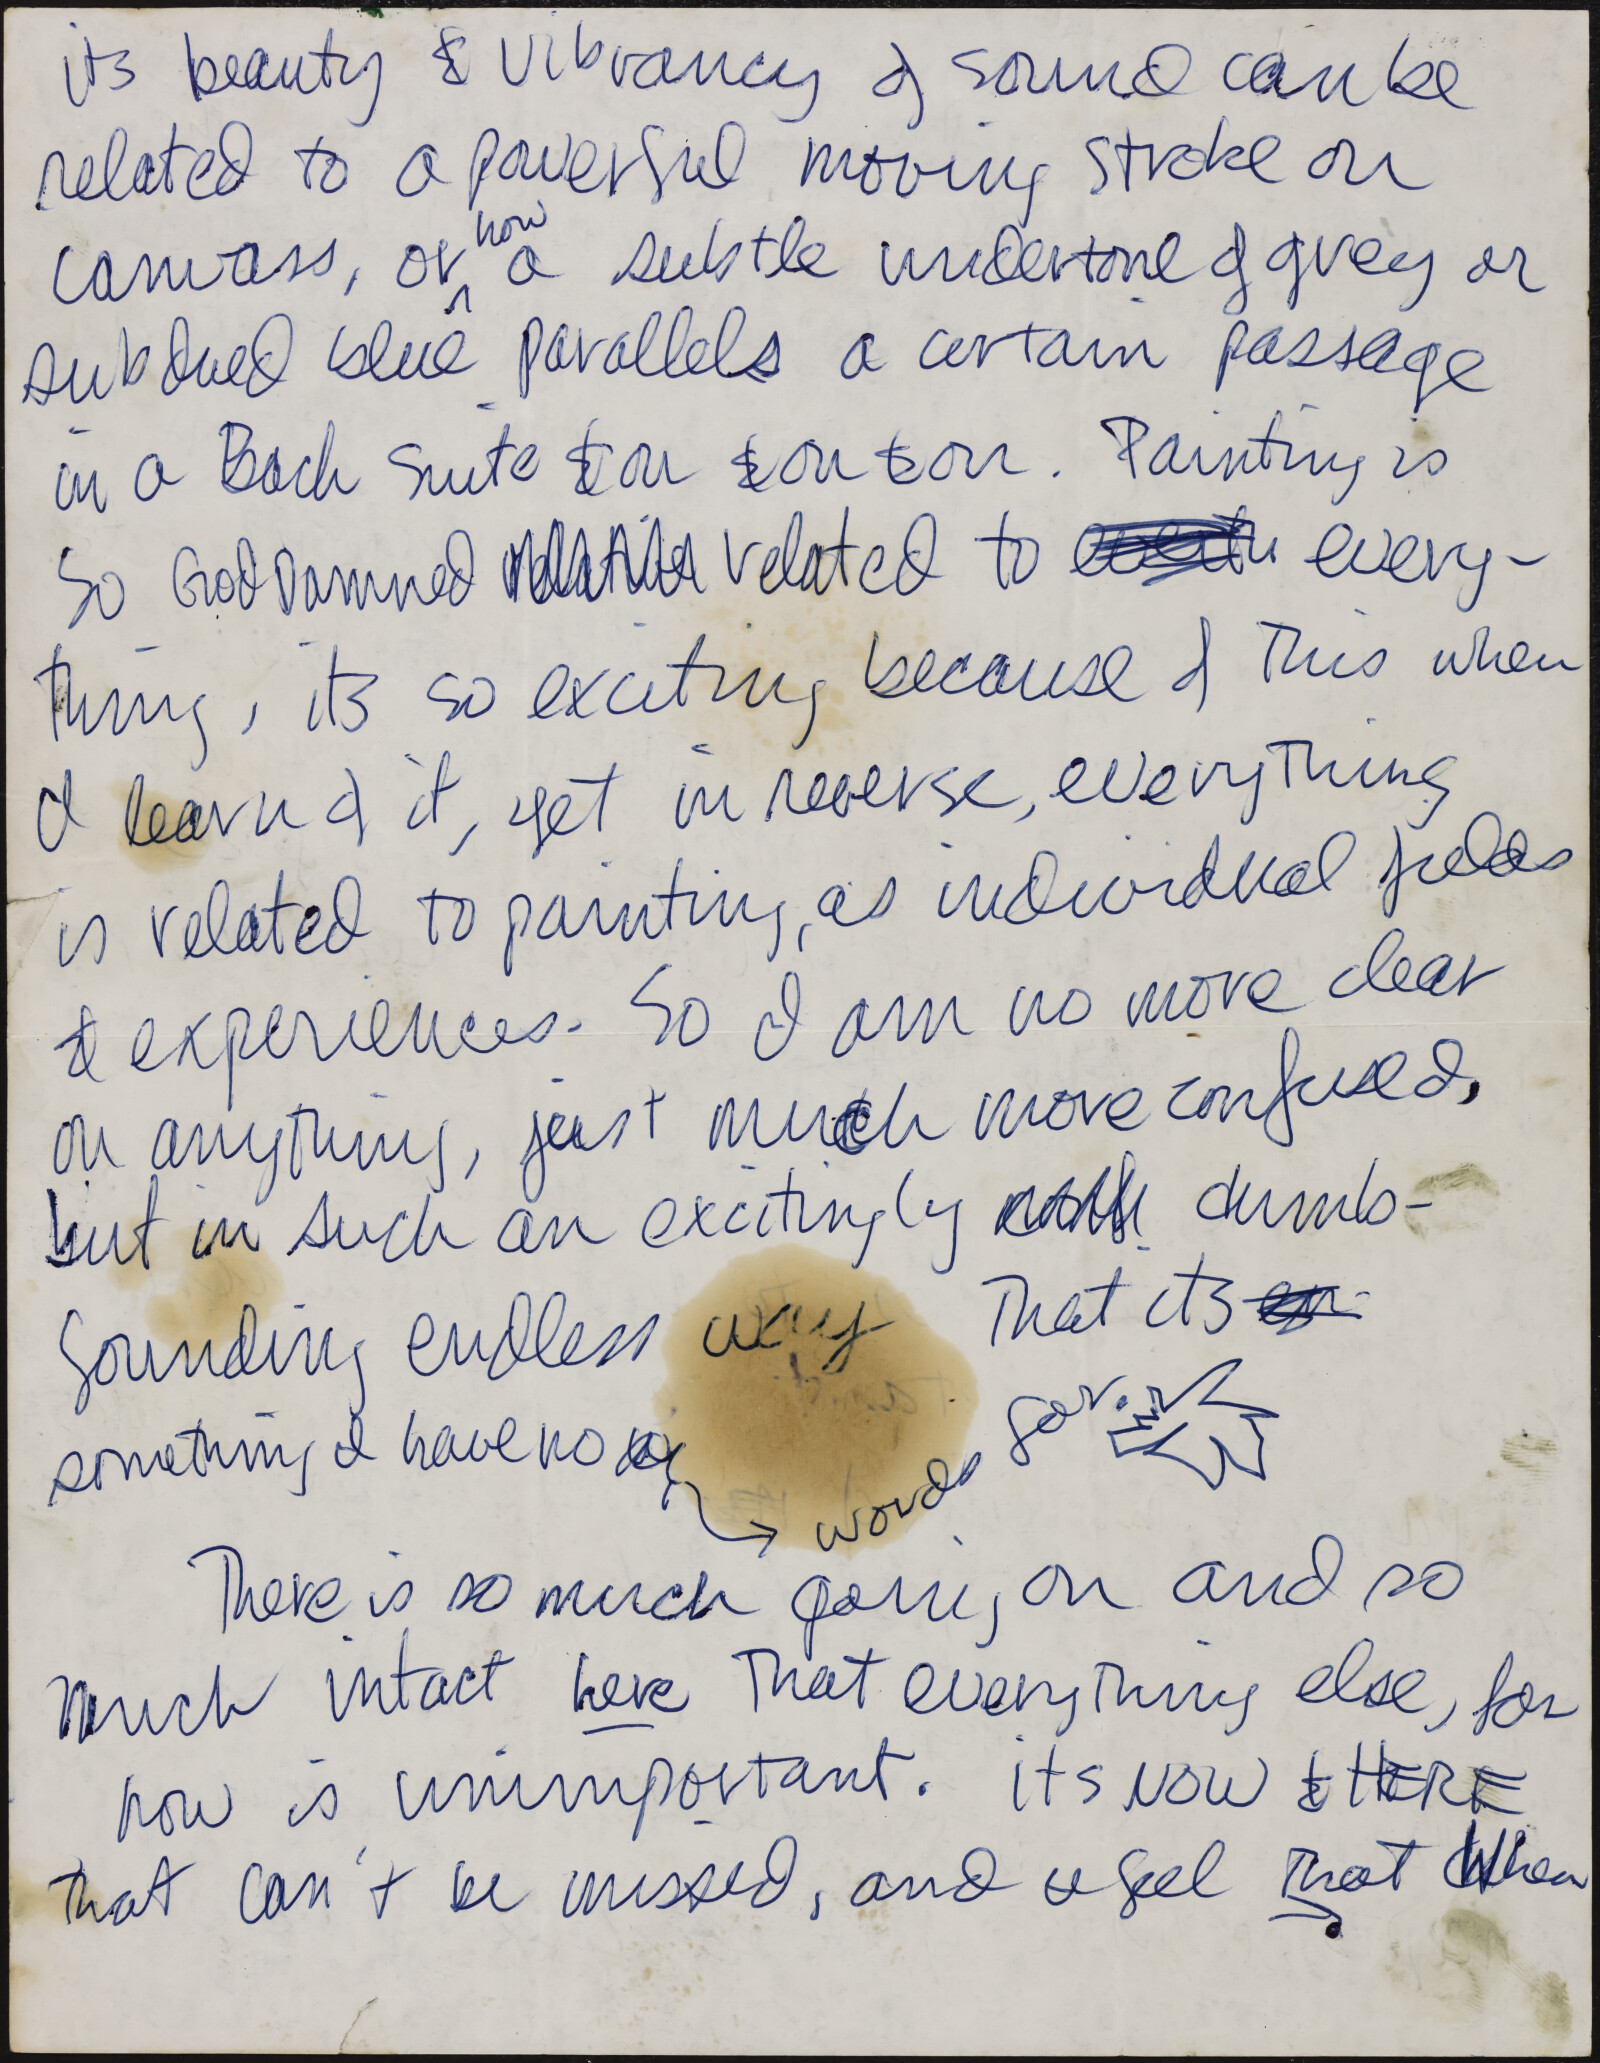 its beauty & vibrancy of sound can be
related to a powerful moving stroke on
canvass, or how a subtle undertone of grey or
subdued blue parallels a certain passage
in a Bach suite & on & on & on. Painting is
so GodDamned related to every-
thing, its so exciting because of this when
I learn of it, yet in reverse, everything
is related to painting, as individual fields
& experiences. So I am no more clear
on anything, just much more confused,
but in such an excitingly dumb-
sounding endless way That its
something I have no words for.
There is so much going on and so
much intact here That everything else, for
now is unimportant. its NOW & HERE
that can't be missed, and I feel That When